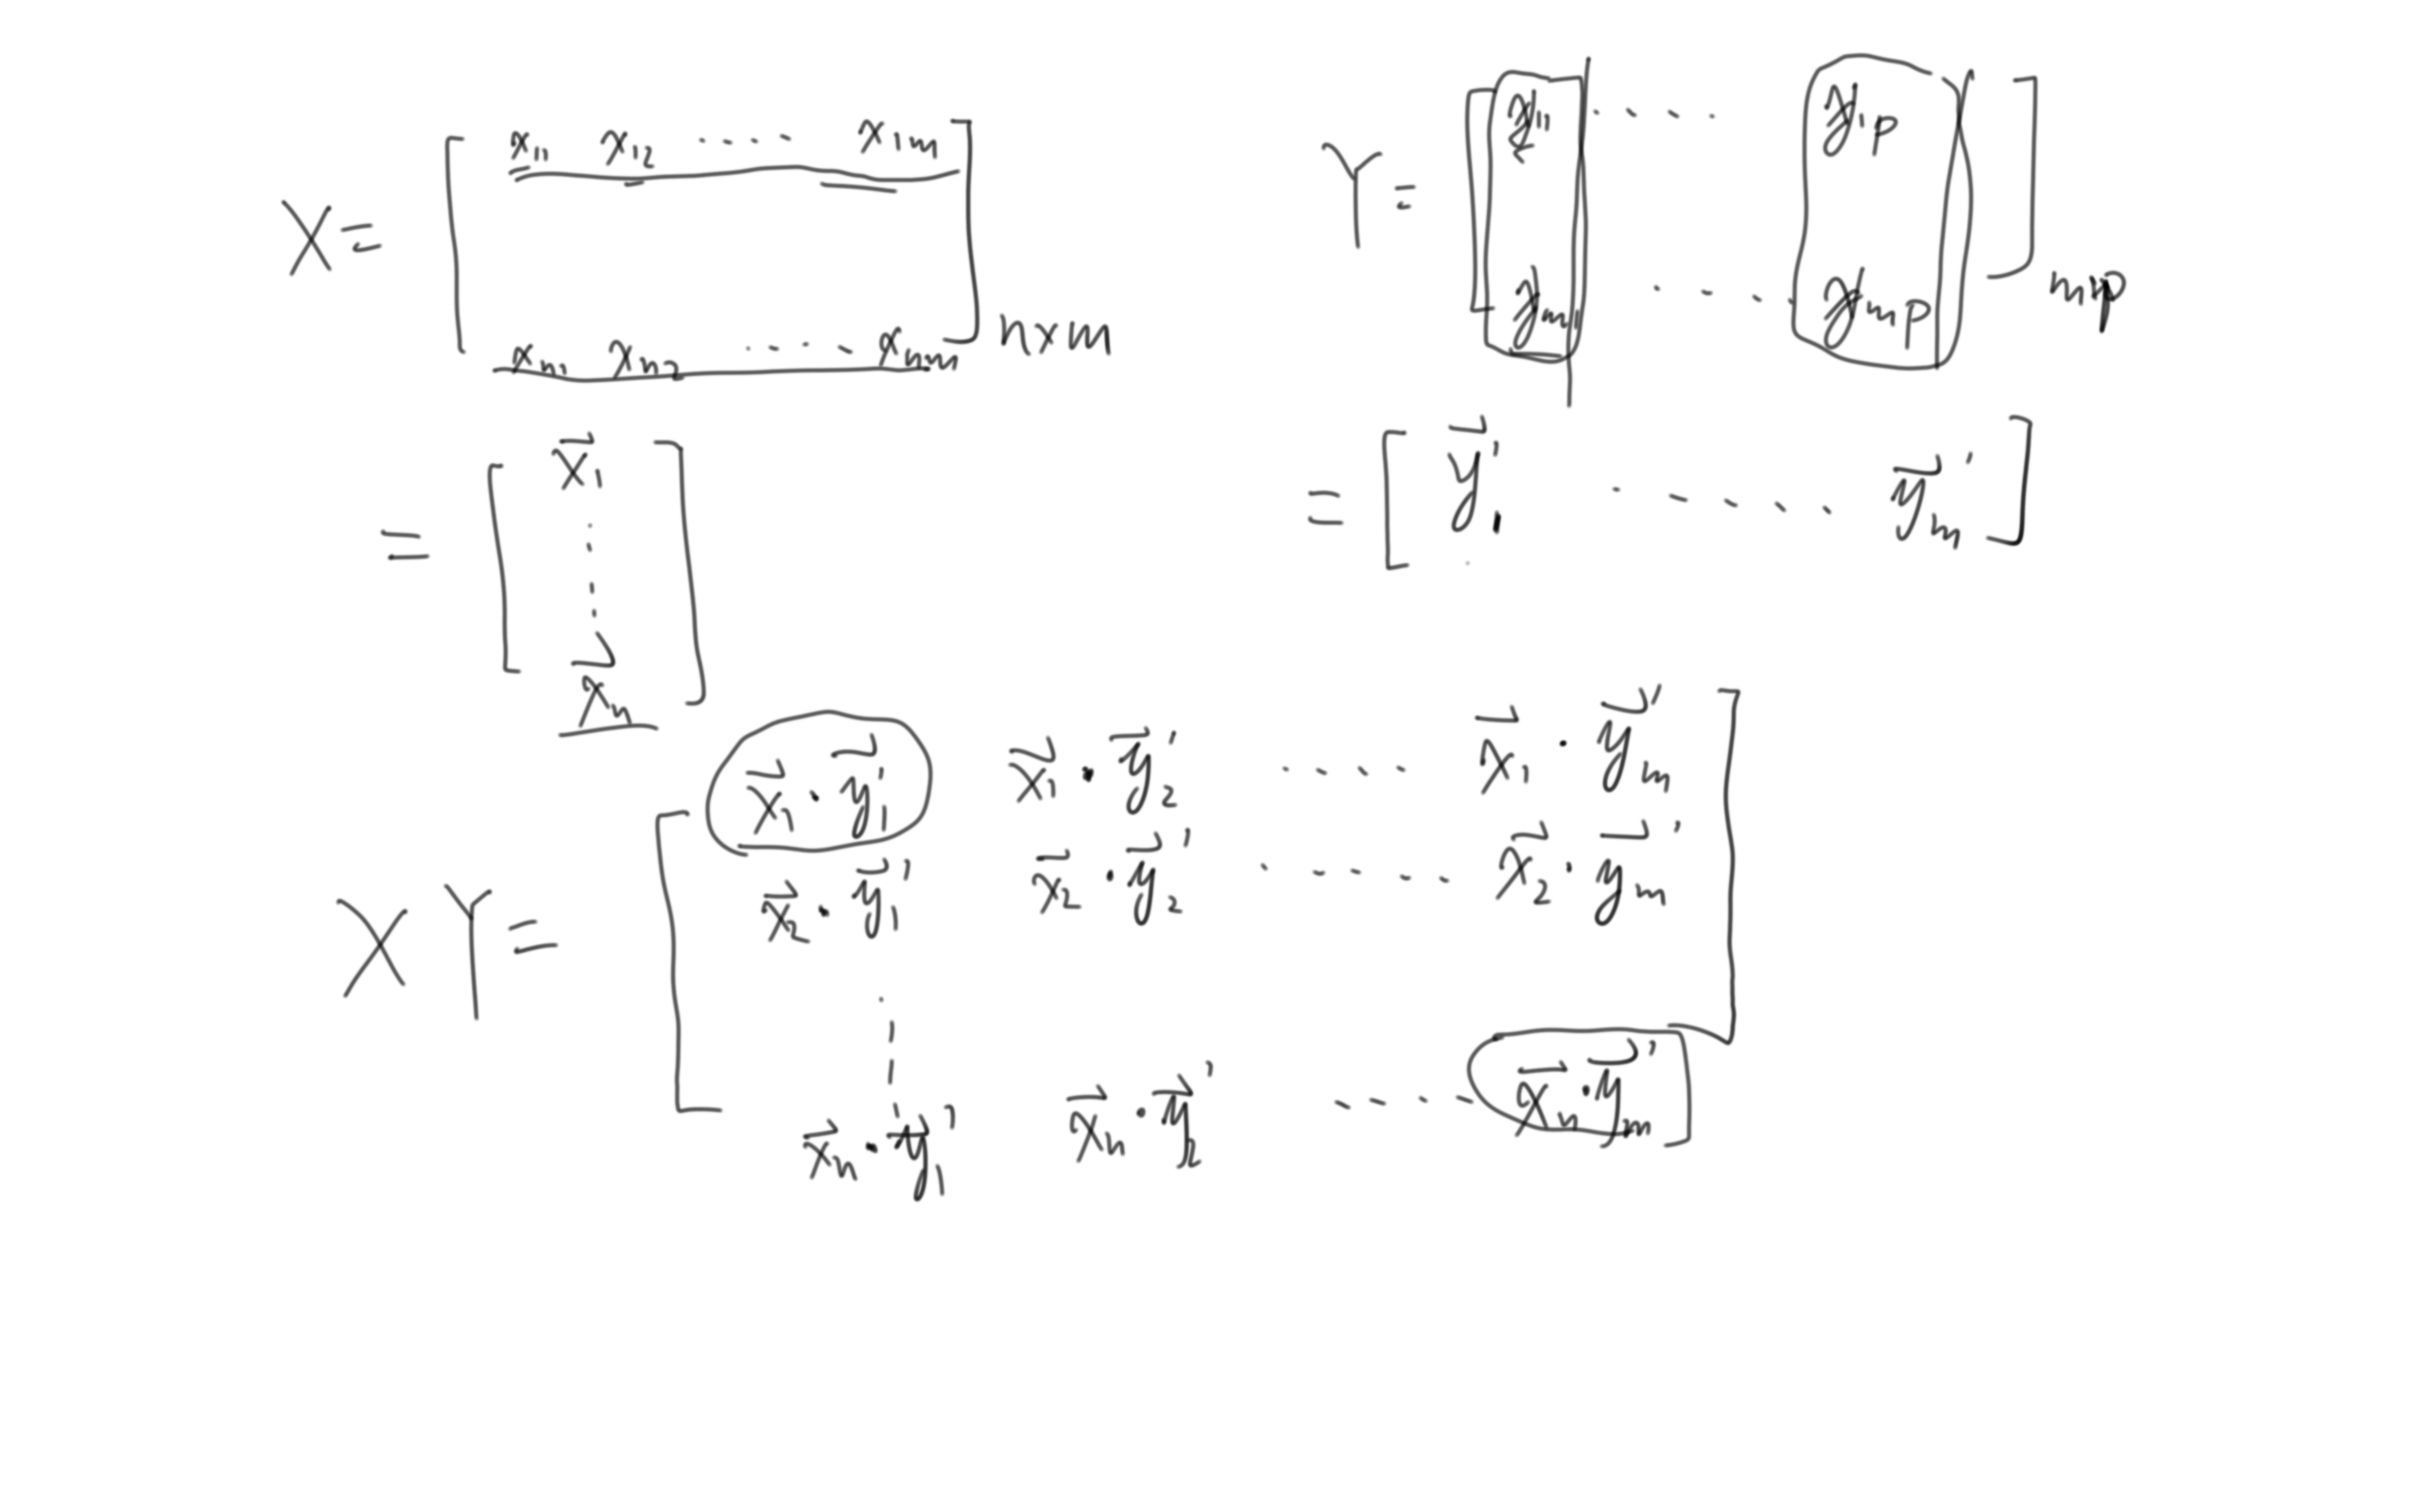 X = [ x₁₁ x₁₂ ..... x₁ₘ
xₙ₁ xₙ₂ .... xₙₘ ] n×m
= [ x⃗₁
⋮
x⃗ₙ ]
Y = [ y₁₁ .... y₁ₚ
yₘ₁ .... yₘₚ ] m×p
= [ y⃗'₁ ..... y⃗'ₘ ]
XY = [ x⃗₁ · y⃗'₁ x⃗₁ · y⃗'₂ .... x⃗₁ · y⃗'ₘ
x⃗₂ · y⃗'₁ x⃗₂ · y⃗'₂ ..... x⃗₂ · y⃗'ₘ
⋮
x⃗ₙ · y⃗'₁ x⃗ₙ · y⃗'₂ .... x⃗ₙ · y⃗'ₘ ]